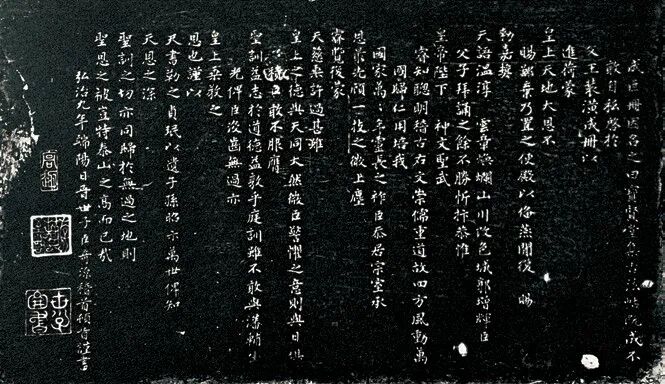 成巨冊因名之曰寳賢堂集古法帖既成不
敢自私啓於
父王裝潢成冊以
進荷蒙
皇上天地大恩不
賜鄙棄乃置之便殿以俻燕閒後 賜
勑嘉奬
天語溫淳 雲章煥爛山川改色城郭增輝臣
父子拜誦之餘不勝忻抃恭惟
皇帝陛下 神文聖武
睿知聰明稽古右文崇儒重道故四方風動萬
國歸仁用培我
國家萬〻年靈長之祚臣忝居宗室承
恩最先顧一技之微上塵
睿覽復蒙
天慈許過甚雖
皇上之德與天同大然臣警懼之意則與日俱
敢不服膺
聖訓益志於道德益敦乎庭訓雖不敢與
光俾臣沒齒無過亦
皇上垂敎之
恩也謹以
天書勒之貞珉以遺子孫昭示萬世俾知
天恩之深
聖訓之切亦同歸於無過之地則
聖恩之被豈特泰山之高而已哉
弘治九年端陽日晉世子臣奇源稽首頓首謹書